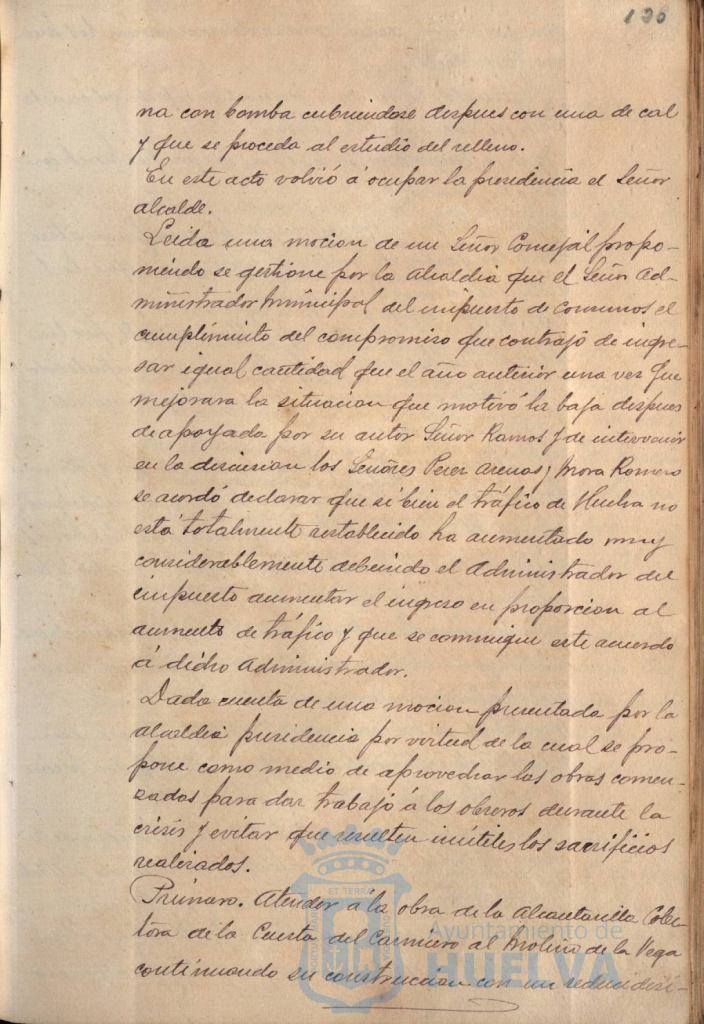 136
na con bomba cubriendose despues con una de cal
y que se proceda al estudio del relleno.
En este acto volvió á ocupar la presidencia el Señor
alcalde.
Leida una mocion de un Señor Concejal propo-
niendo se gestione por la Alcaldia que el Señor Ad-
ministrador municipal del impuesto de Consumos el
cumplimiento del compromiso que contrajo de ingre-
sar igual cantidad que el año anterior una vez que
mejorara la situacion que motivó la baja despues
de apoyada por su autor Señor Ramos y de intervenir
en la discusion los Señores Perez Arenas y Mora Romero
se acordó declarar que si bien el tráfico de Huelva no
está totalmente restablecido ha aumentado muy
considerablemente debiendo el Administrador del
impuesto aumentar el ingreso en proporcion al
aumento de tráfico y que se comunique este acuerdo
á dicho Administrador.
Dada cuenta de una mocion presentada por la
alcaldia presidencia por virtud de la cual se pro-
pone como medio de aprovechar las obras comen-
zadas para dar trabajo á los obreros durante la
crisis y evitar que resulten inútiles los sacrificios
realizados.
Primero. Atender á la obra de la Alcantarilla Colec-
tora de la Cuesta del Carnicero al Molino de la Vega
continuando su construccion con un
ET TERRA
Ayuntamiento de
HUELVA